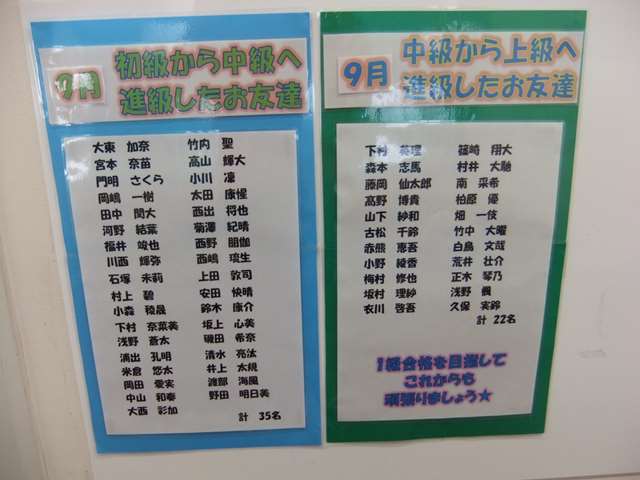 9月
初級から中級へ
進級したお友達
大東 加奈
宮本 奈苗
門明 さくら
岡嶋 一樹
田中 関大
河野 結葉
福井 竣也
川西 輝弥
石塚 未莉
村上 碧
小森 稜晟
下村 奈菜美
浅野 蒼太
浦出 孔明
米倉 悠太
岡田 愛実
中山 和奏
大西 彩加
竹内 聖
高山 輝大
小川 凜
太田 康惺
西出 将也
菊澤 紀晴
西野 朋伽
西嶋 琉生
上田 敦司
安田 快晴
鈴木 康介
坂上 心美
磯田 希奈
清水 亮汰
井上 太規
渡部 海風
野田 明日美
計 35名
9月
中級から上級へ
進級したお友達
下村 英理
森本 志馬
藤岡 仙太郎
高野 博貴
山下 紗和
古松 千鈴
赤熊 恵吾
小野 綾香
梅村 修也
坂村 理紗
衣川 啓吾
篠崎 翔大
村井 大馳
南 采希
柏原 優
畑 一伎
竹中 大曜
白鳥 文哉
荒井 壮介
正木 琴乃
浅野 楓
久保 実鈴
計 22名
1級合格を目指して
これからも
頑張りましょう★